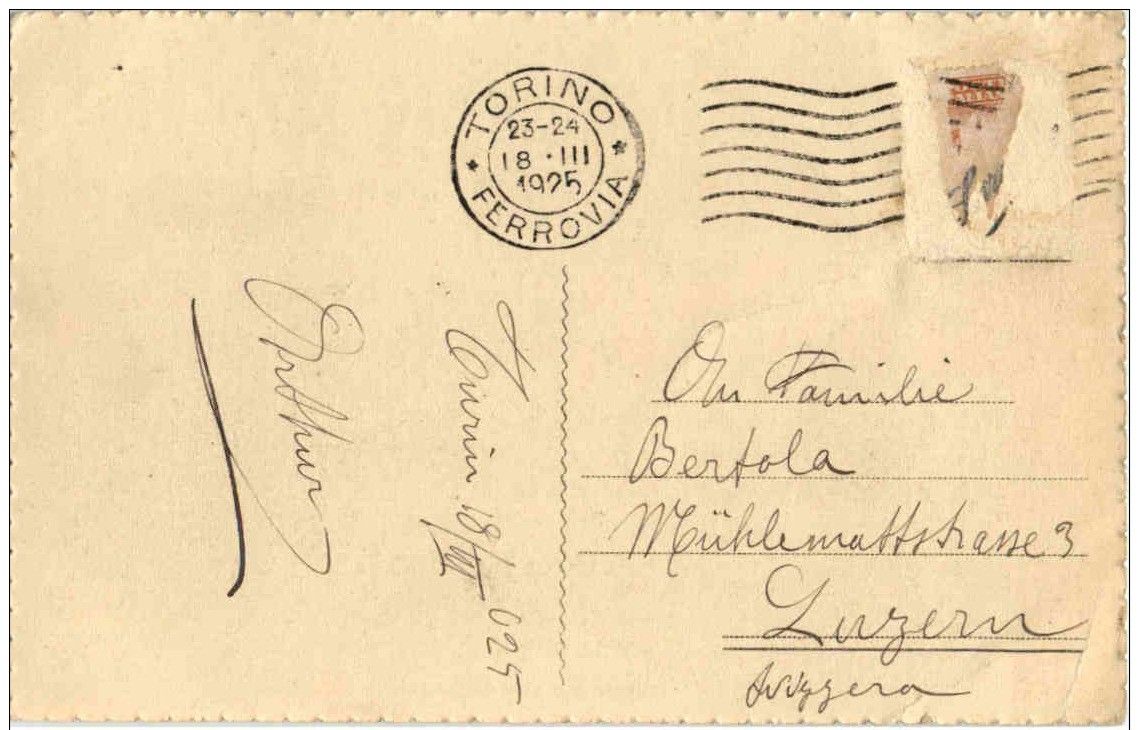 TORINO
23-24
18 · III
1925
FERROVIA
An Familie
Bertola
Mühlemattstrasse 3
Luzern
Svizzera
Turin 18/III 025
Arthur